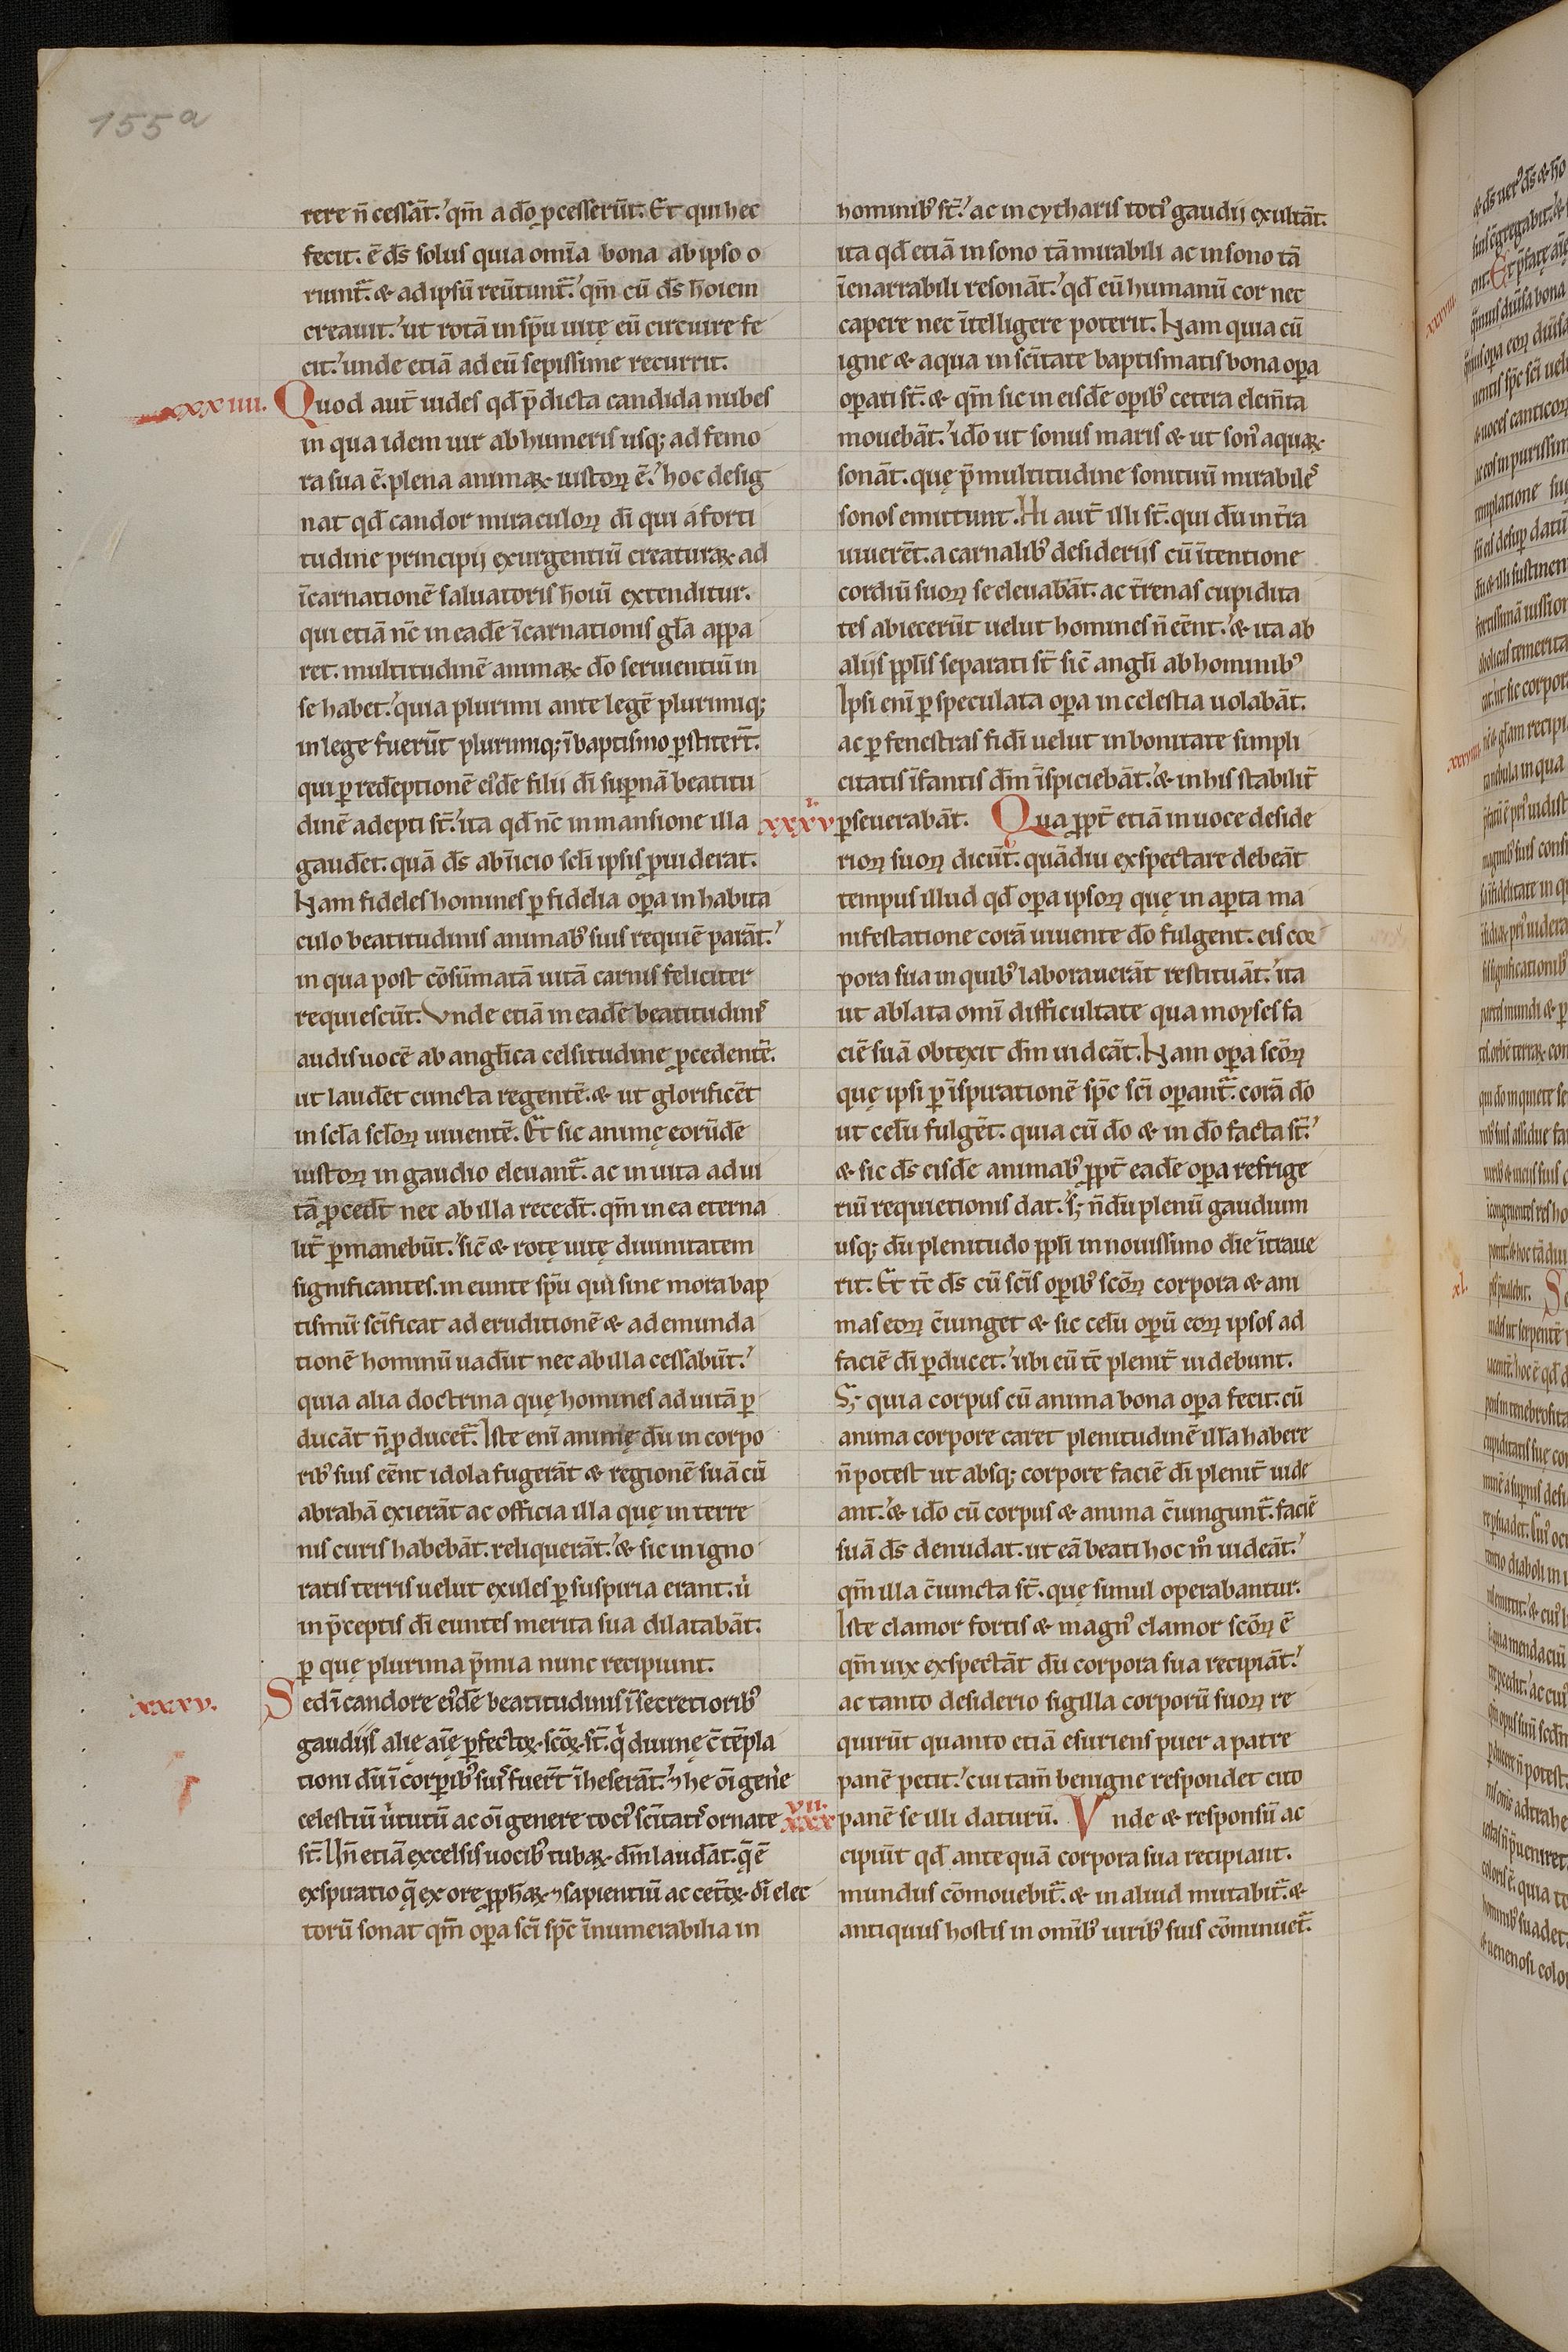 155a
rere n̄ cessāt. qm̄ a dō pcesserūt. Et qui hec
fecit. ē ds̄ solus quia om̄ia bona ab ipso o
riunt̄. & ad ipsū reūtunt̄. qm̄ cū ds̄ h̄oiem
creauit. ut rotā in sp̄u uitę eū circuire fe
cit. unde etiā ad eū sepissime recurrit.
xxxiiii. Quod aut̄ uides qd̄ p̄dicta candida nubes
in qua idem uir ab humeris usq; ad femo
ra sua ē. plena animaꝝ iustoꝝ ē. hoc desig
nat qd̄ candor miraculoꝝ dī qui a forti
tudine principij exurgentiū creaturaꝝ ad
īcarnationē saluatoris hoīū extenditur.
qui etiā nc̄ in eadē īcarnationis gl̄a appa
ret. multitudinē animaꝝ dō seruientiū in
se habet. quia plurimi ante legē plurimiq;
in lege fuerūt plurimiq; ī baptismo ꝑstitert̄.
qui ꝑ redēptionē ei'dē filii dī supnā beatitu
dinē adepti st̄. ita qd̄ nc̄ in mansione illa
gaudēt. quā ds̄ ab īnicio scl̄i ipsis puiderat.
Nam fideles homines ꝑ fidelia opa in habita
culo beatitudinis animab' suis requiē parāt.
in qua post cōsūmatā uitā carnis feliciter
requiescūt. Vnde etiā in eadē beatitudinis
audis uocē ab angl̄ica celsitudine pcedentē.
ut laudēt cuncta regentē. & ut glorificēt
in scl̄a scl̄oꝝ uiuentē. Et sic animę eorūdē
iustoꝝ in gaudio eleuant̄. ac in uita ad ui
tā pcedt̄ nec ab illa recedt̄. qm̄ in ea eterna
lit̄ ꝑmanebūt. sic̄ & rotę uitę diuinitatem
significantes. in eunte sp̄u qui sine mora bap
tismū scīficat ad eruditionē & ad emunda
tionē hominū uadūt nec ab illa cessabūt.
quia alia doctrina quę homines ad uitā ꝑ
ducāt n̄ pducet̄. Iste enī animę dū in corpo
rib' suis eēnt idola fugerāt & regionē suā cū
abrahā exierāt ac officia illa quę in terre
nis curis habebāt. reliquerāt. & sic in igno
ratis terris uelut exules ꝑ suspiria erant. u̇
in p̄ceptis dī euntes merita sua dilatabāt.
ꝑ quę plurima p̄mia nunc recipiunt.
xxxv. Sed ī candore ei'dē beatitudinis ī secretiorib'
gaudijs alię aīę ꝑfectoꝝ. scōꝝ. st̄. q̇ diuinę c̄tēpla
tioni dū ī corporib' suis fuert̄ īheserāt. he oī gen̄e
celestiū u̇tutū ac oī genere toci' scītatis ornate
st̄. Un̄ etiā excelsis uocib' tubaꝝ dm̄ laudāt. q̄ ē
exspiratio q̄ ex ore pph̄aꝝ sapientiū ac cet̄oꝝ dī elec
torū sonat qm̄ opa scī sp̄c īnumerabilia in
hominib' st̄. ac in cytharis toti' gaudij exultāt.
ita qd̄ etiā in sono tā mirabili ac in sono tā
īenarrabili resonāt. qd̄ eū humanū cor nec
capere nec ītelligere poterit. Nam quia cū
igne & aqua in scītate baptismatis bona opa
opati st̄. & qm̄ sic in eisdē opib' cetera elem̄ta
mouebāt. idō ut sonus maris & ut son' aquaꝝ
sonāt. quę p̄ multitudine sonituū mirabiles
sonos emittunt. Hi aut̄ illi st̄. qui dū in t̄ra
uiuerēt. a carnalib' desiderijs cū ītentione
cordiū suoꝝ se eleuabāt. ac t̄renas cupidita
tes abiecerūt uelut homines n̄ eēnt. & ita ab
alijs ppl̄is separati st̄ sic̄ angl̄i ab hominib'
Ipsi enī ꝑ speculata opa in celestia uolabāt.
ac ꝑ fenestras fidī uelut in bonitate simpli
citatis īfantis dm̄ īspiciebāt. & in his stabilit̄
xxxvi. ꝑseuerabāt. Qua ppt̄ etiā in uoce deside
rioꝝ suoꝝ dicūt. quādiu exspectare debeāt
tempus illud qd̄ opa ipsoꝝ quę in apta ma
nifestatione corā uiuente dō fulgent. eis cor
pora sua in quib' laborauerāt restituāt. ita
ut ablata omī difficultate qua moyses fa
ciē suā obtexit dm̄ uideāt. Nam opa scōꝝ
quę ipsi ꝑ īspirationē sp̄c scī opant̄. corā dō
ut celū fulgēt. quia cū dō & in dō facta st̄.
& sic ds̄ eisdē animab' ppt̄ eadē opa refrige
riū requietionis dat. s; n̄dū plenū gaudium
usq; dū plenitudo ppl̄i in nouissimo die ītraue
rit. Et tc̄ ds̄ cū scīs opib' scōꝝ corpora & ani
mas eoꝝ c̄iunget & sic celū opū eoꝝ ipsos ad
faciē dī pducet. ubi eū tc̄ plenit̄ uidebunt.
S; quia corpus cū anima bona opa fecit. cū
anima corpore caret plenitudinē illā habere
n̄ potest ut absq; corpore faciē dī plenit̄ uide
ant. & idō cū corpus & anima c̄iungunt̄. faciē
suā ds̄ denudat. ut eā beati hoc m̊ uideāt.
qm̄ illa c̄iuncta st̄. quę simul operabantur.
Iste clamor fortis & magn' clamor scōꝝ ē
qm̄ uix exspectāt dū corpora sua recipiāt.
ac tanto desiderio sigilla corporū suoꝝ re
quirūt quanto etiā esuriens puer a patre
panē petit. cui tam̄ benigne respondet cito
xxxvii. panē se illi daturū. Vnde & responsū ac
cipiūt qd̄ ante quā corpora sua recipiant.
mundus cōmouebit̄. & in aliud mutabit̄. &
antiquus hostis in omīb' uirib' suis cōminuet̄.